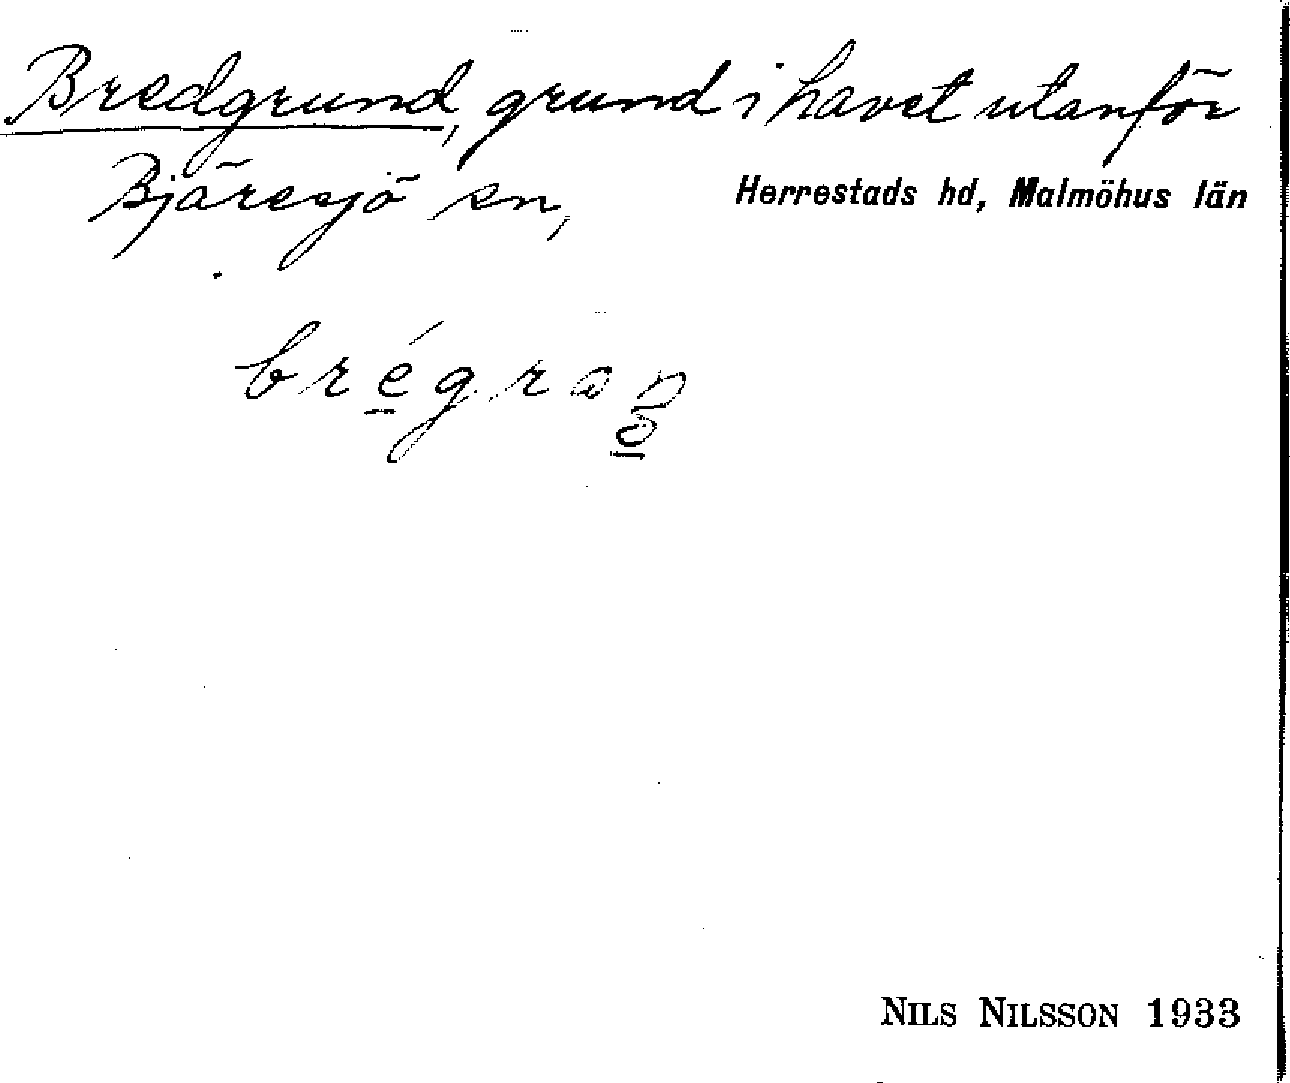 Bredgrund, grund i havet utanför
Bjäresjö sn, Herrestads hd, Malmöhus län
NILS NILSSON 1933